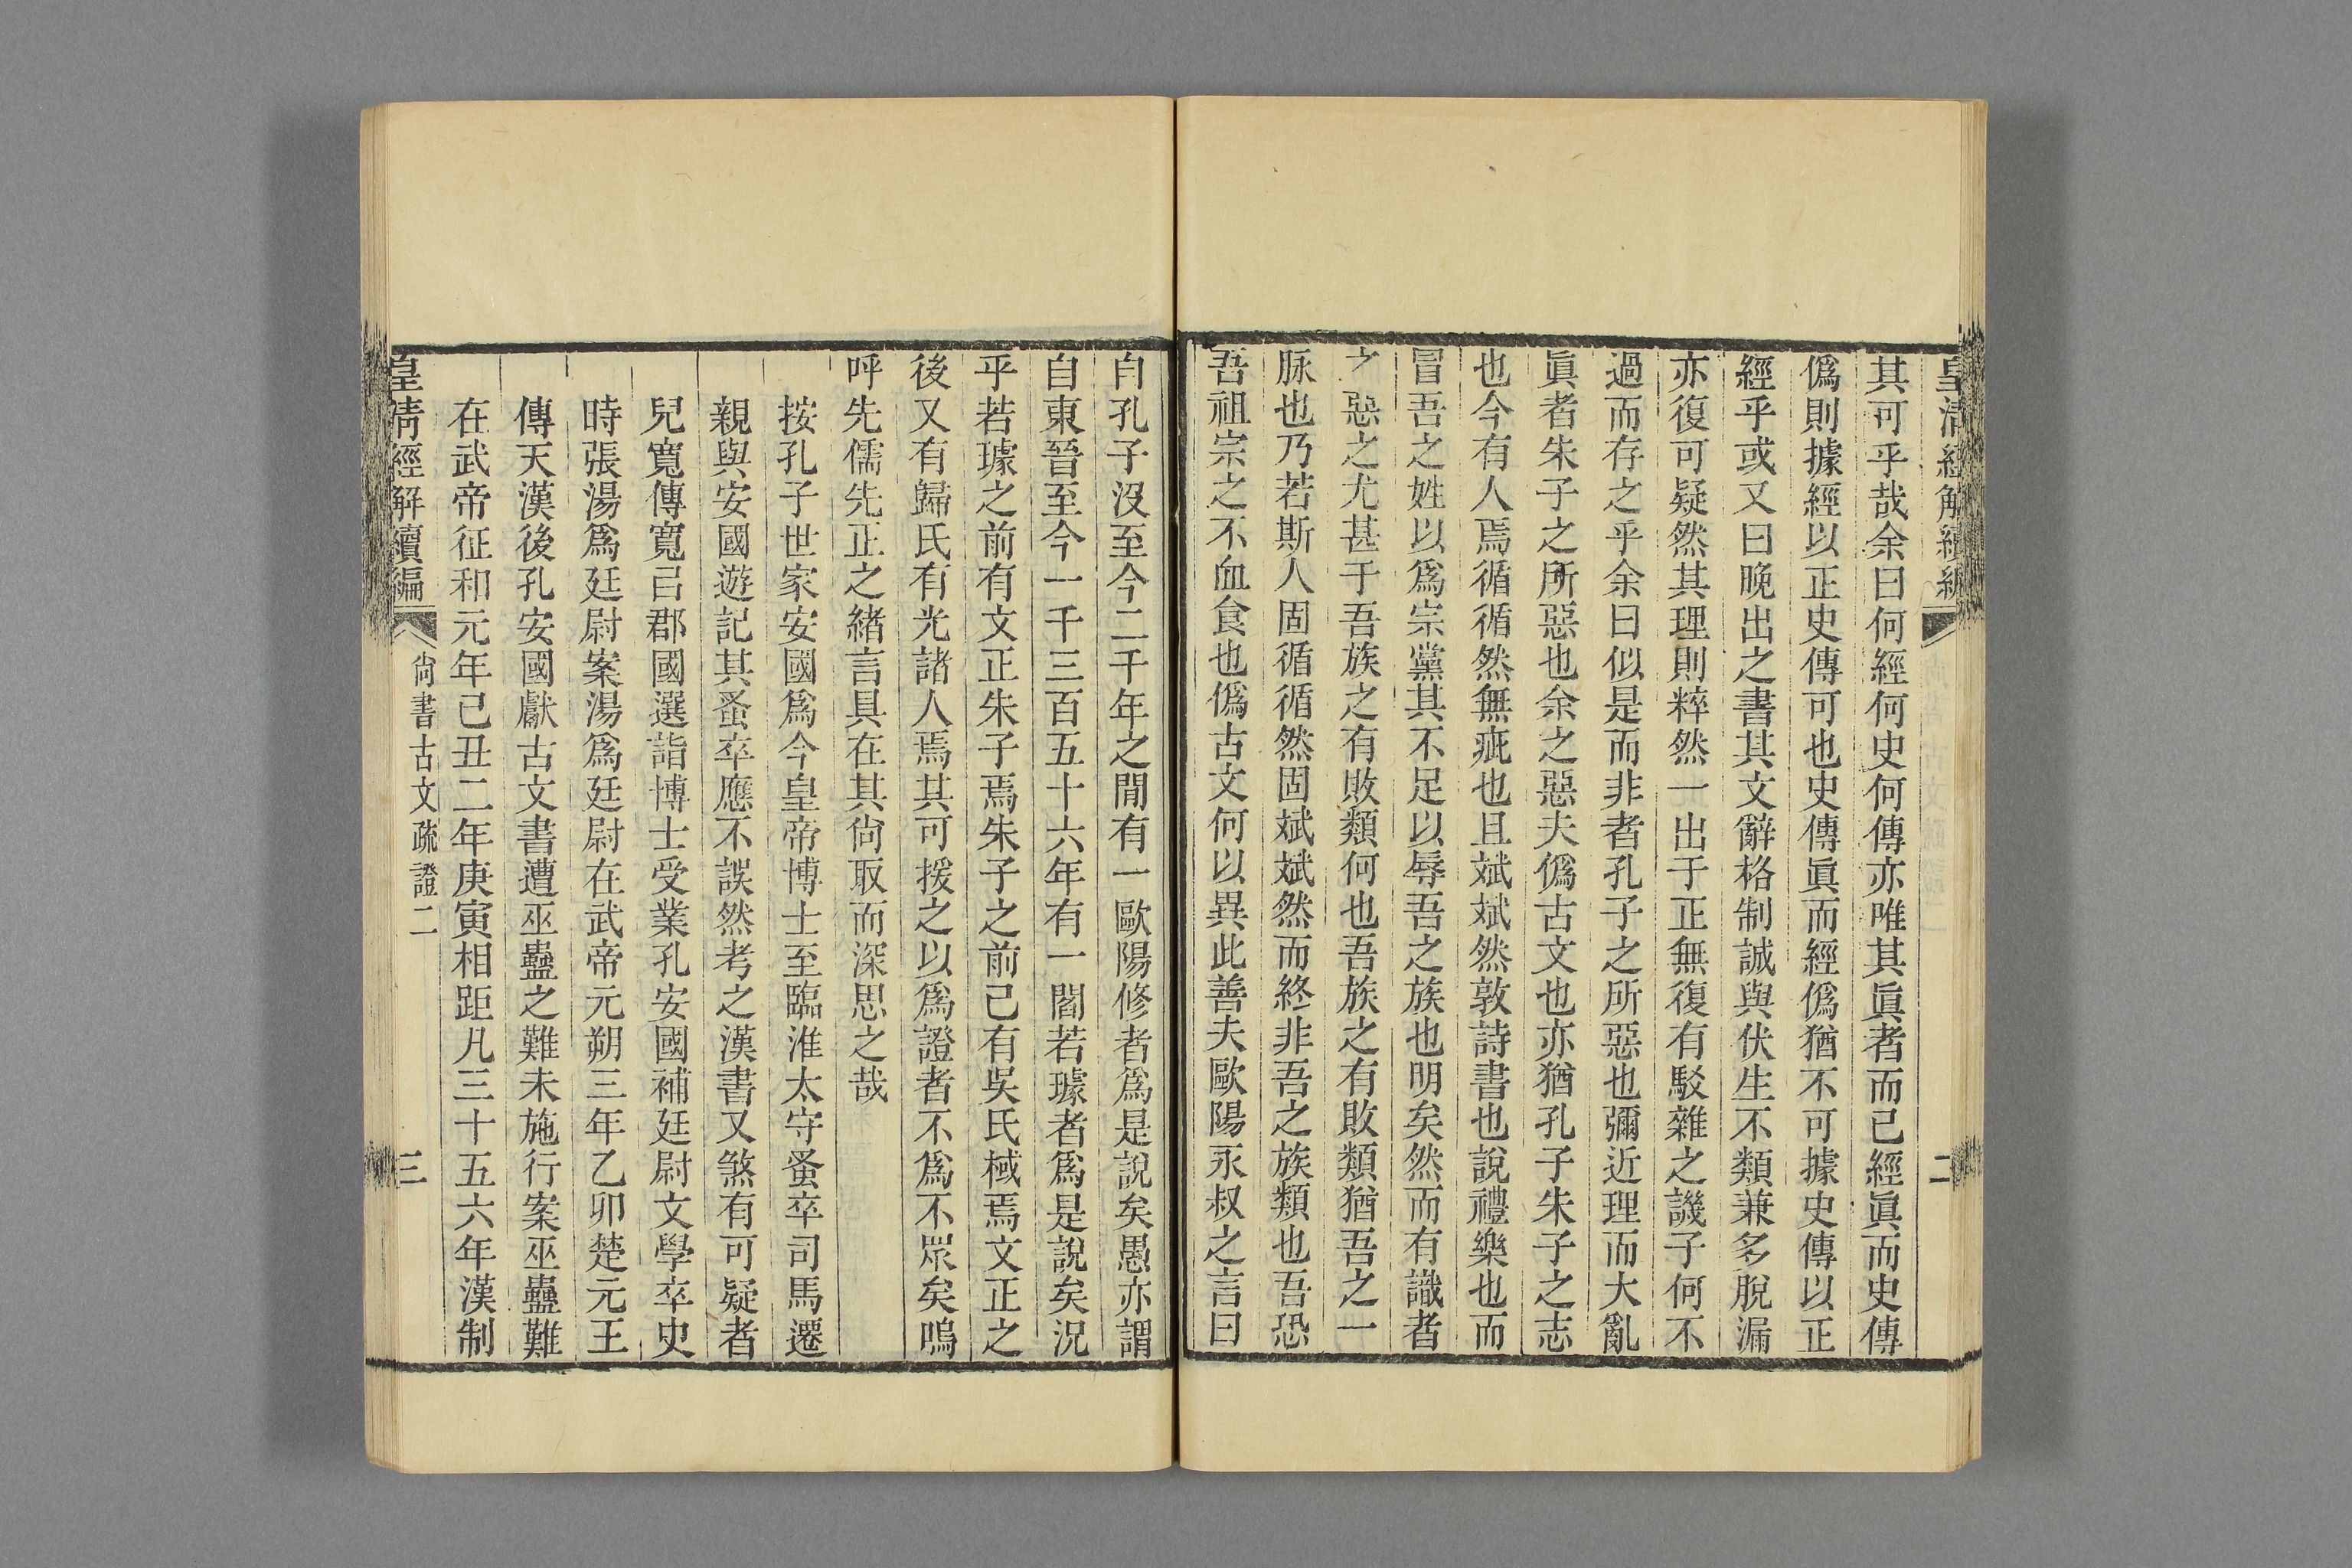 皇清經解續編
二
其可乎哉余曰何經何史何傳亦唯其眞者而已經眞而史傳
僞則據經以正史傳可也史傳眞而經僞猶不可據史傳以正
經乎或又曰晚出之書其文辭格制誠與伏生不類兼多脫漏
亦復可疑然其理則粹然一出于正無復有駁雜之譏子何不
過而存之乎余曰似是而非者孔子之所惡也彌近理而大亂
眞者朱子之所惡也余之惡夫僞古文也亦猶孔子朱子之志
也今有人焉循循然無疵也且斌斌然敦詩書也說禮樂也而
冒吾之姓以爲宗黨其不足以辱吾之族也明矣然而有識者
之惡之尤甚于吾族之有敗類何也吾族之有敗類猶吾之一
脉也乃若斯人固循循然固斌斌然而終非吾之族類也吾恐
吾祖宗之不血食也僞古文何以異此善夫歐陽永叔之言曰
自孔子沒至今二千年之閒有一歐陽修者爲是說矣愚亦謂
自東晉至今一千三百五十六年有一閻若璩者爲是說矣況
乎若璩之前有文正朱子焉朱子之前已有吳氏棫焉文正之
後又有歸氏有光諸人焉其可援之以爲證者不爲不眾矣嗚
呼先儒先正之緒言具在其尙取而深思之哉
按孔子世家安國爲今皇帝博士至臨淮太守蚤卒司馬遷
親與安國遊記其蚤卒應不誤然考之漢書又煞有可疑者
兒寬傳寬㠯郡國選詣博士受業孔安國補廷尉文學卒史
時張湯爲廷尉案湯爲廷尉在武帝元朔三年乙卯楚元王
傳天漢後孔安國獻古文書遭巫蠱之難未施行案巫蠱難
在武帝征和元年己丑二年庚寅相距凡三十五六年漢制
皇清經解續編
尙書古文疏證二
三